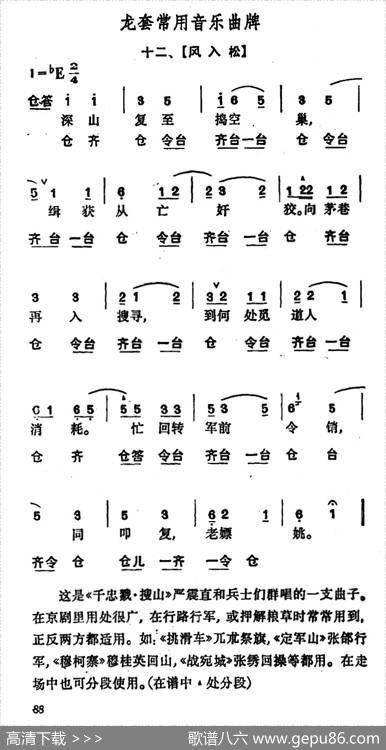 龙套常用音乐曲牌
十二、【风入松】
1=♭E 2/4
仓答 i i | 3 5 | i 6 5 | 3
深山 复至 捣空 巢，
仓 齐 仓 令台 齐台一台 仓 令台
缉获 从亡 奸 狡。向茅巷
齐台 一台 仓 令台 齐台 一台 仓 令台
3 3 | 2 1 2 | 3 2 1 1 | 2 2 1
再入 搜寻， 到何处觅 道人
仓 令台 齐台 一台 仓 令台 齐台 一台
消耗。 忙回转 军前 令销，
仓 齐 仓答 令台 齐台 一台 仓 台
5 3 | 5
同 叩复，老嫖 姚。
齐令 仓 仓儿 一齐 一令 仓
这是《千忠戮·搜山》严震直和兵士们群唱的一支曲子。
在京剧里用处很广，在行路行军，或押解粮草时常常用到，
正反两方都适用。如：《挑滑车》兀朮祭旗，《定军山》张郃行
军，《穆柯寨》穆桂英回山，《战宛城》张绣回操等都用。在走
场中也可分段使用。(在谱中▲处分段)
68
高清下载 >>> 歌谱八六 www.gepu86.com